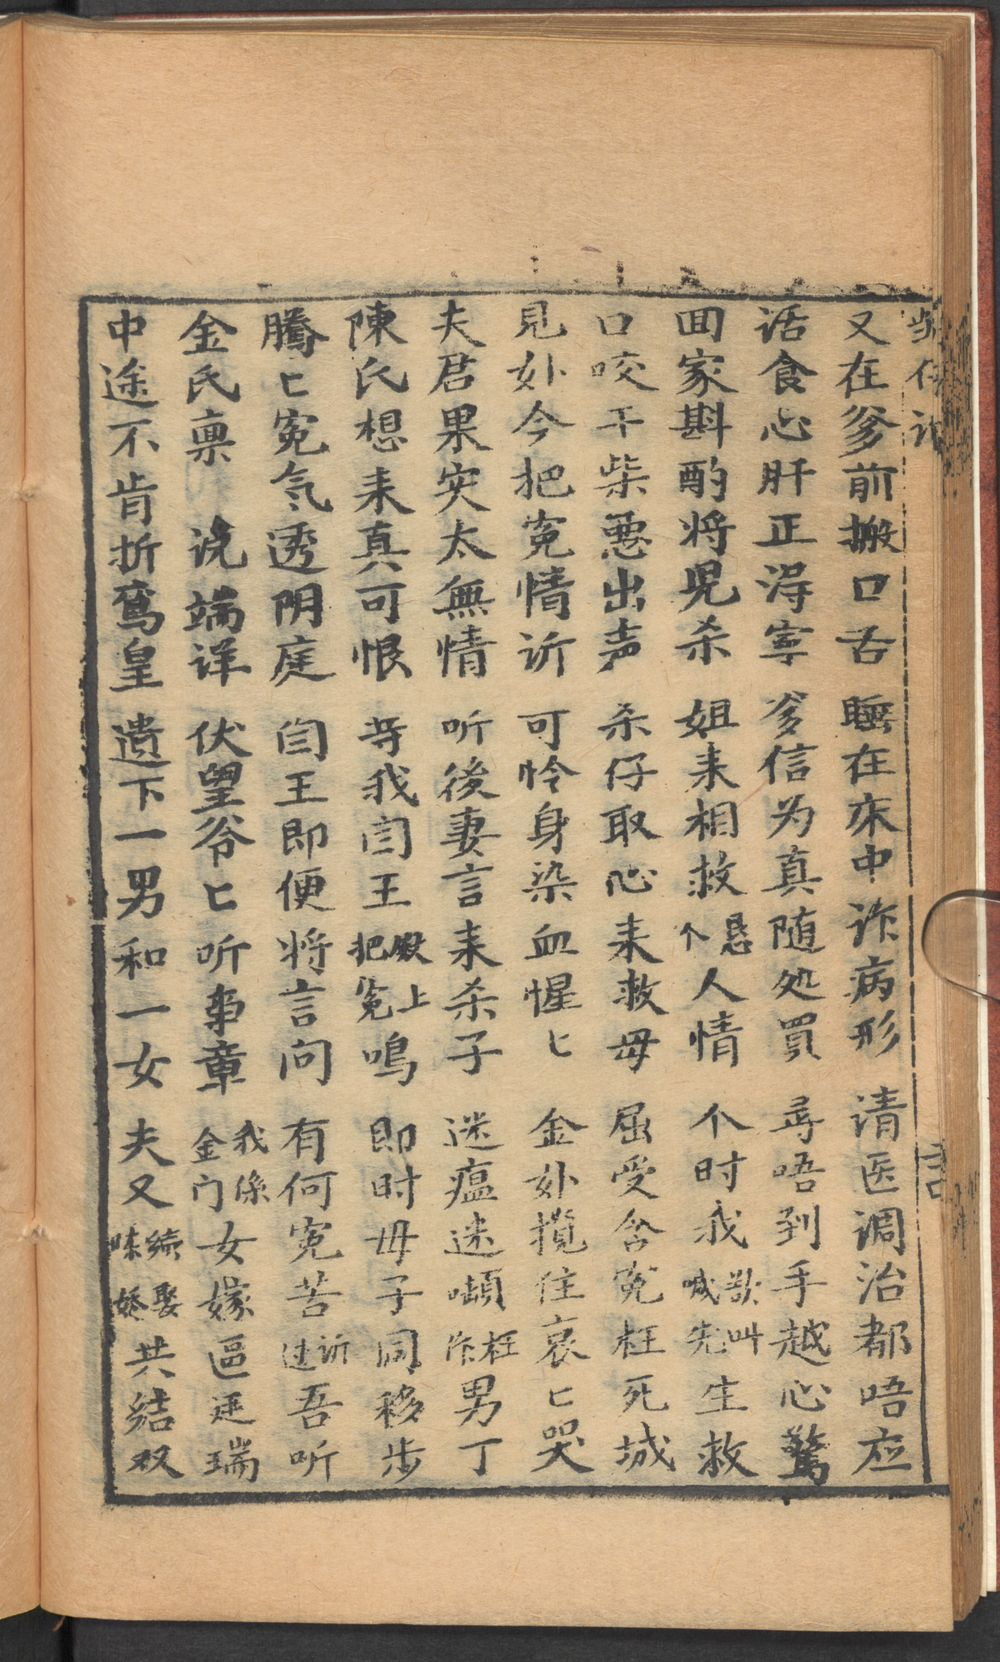 又在爹前搬口舌 睡在床中诈病形 请医调治都唔应
活食心肝正淂寜 爹信为真随处買 寻唔到手越心驚
囬家斟酌将児杀 姐来相救恳个人情 个时我欲叫喊先生救
口咬干柴悪出声 杀仔取心来救母 屈受含冤枉死城
見𡛟今把冤情诉 可怜身染血惺匕 金𡛟搅住哀匕哭
夫君果实太無情 听後妻言来杀子 迷瘟迷𡃤枉作男丁
陳氏想来真可恨 等我闫王殿上把冤鳴 即时毋子同移步
騰匕冤気透阴庭 闫王即便将言问 有何冤苦诉过吾听
金氏禀 说端详 伏望爷匕听事章 我係金门女嫁區廷瑞
中途不肯折鴛皇 遗下一男和一女 夫又续娶妹娇共结双